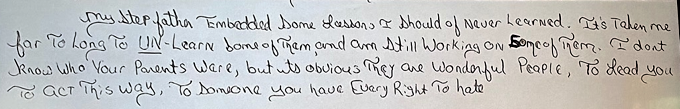 My Step father Embedded Some Lessons I Should of Never Learned. It's Taken me
far To Long To UN-Learn Some of Them, and am Still Working on Some of Them. I dont
Know Who Your Parents Were, but its obvious They are Wonderful People, To lead you
To act This way, To Someone you have Every Right To hate